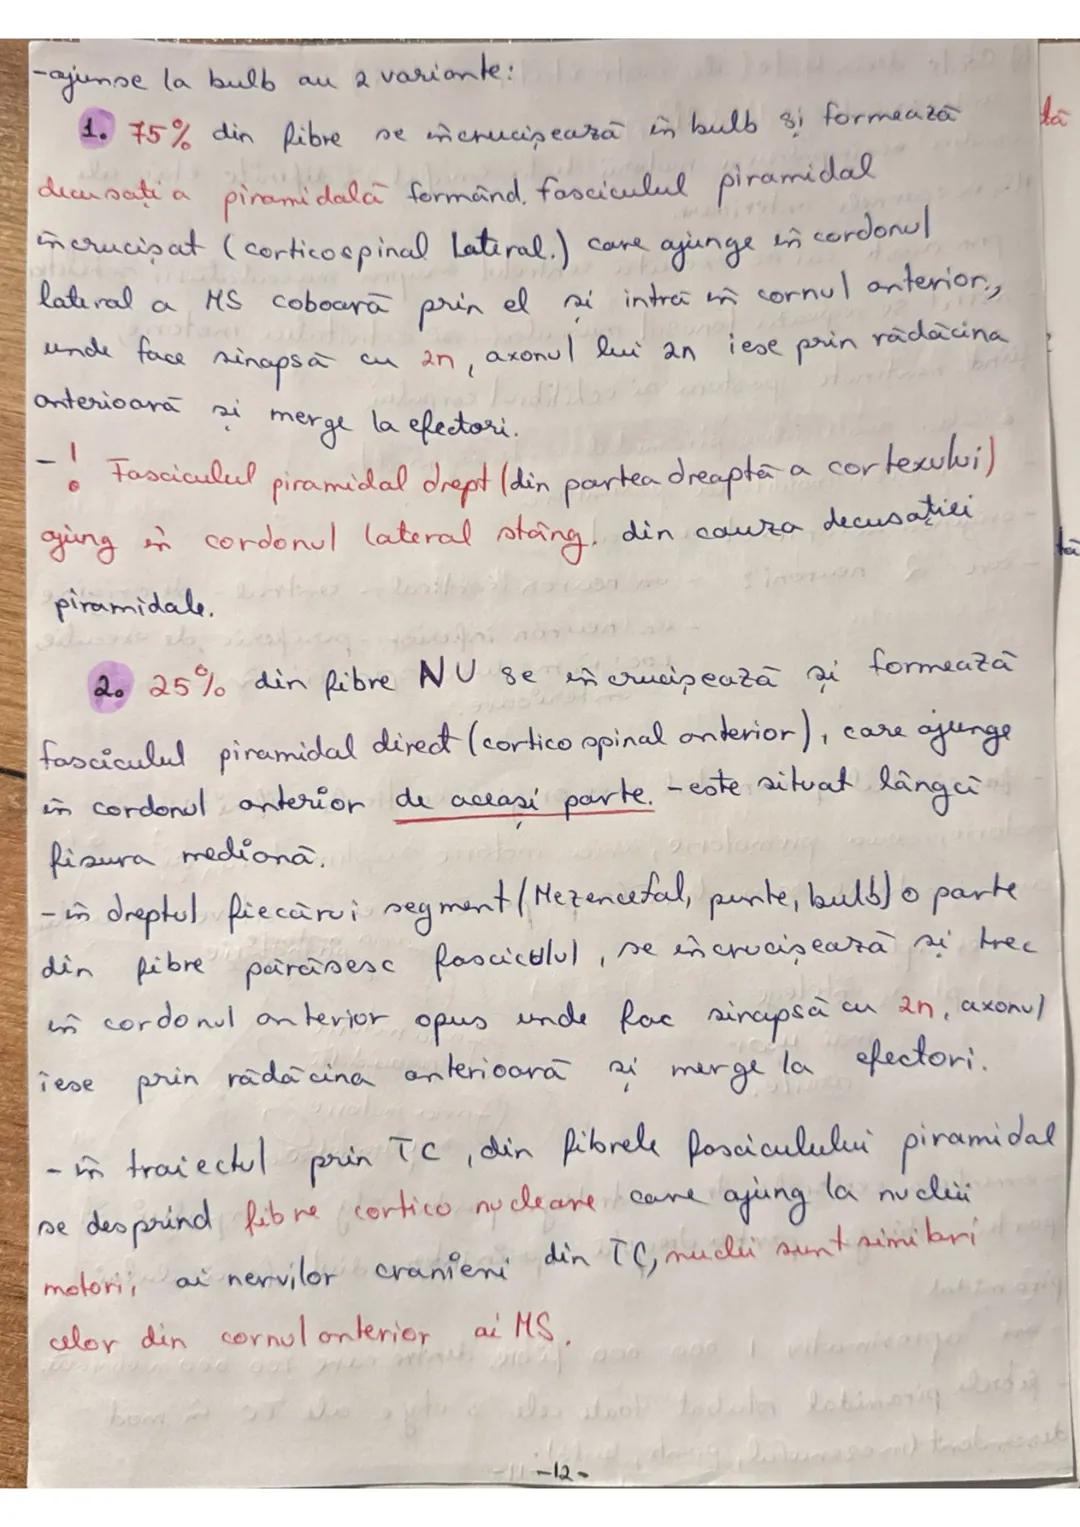 -ajunse la bulb au 2 variante:
1. 75% din fibre se încrucișează în bulb și formează
decusația piramidală formând fasciculul piramidal
încrucișat (corticospinal Lateral.) care ajunge în cordonul
lateral a MS coboară prin el și intră în cornul anterior,
unde face sinapsă cu 2n, axonul lui 2n iese prin rădăcina
anterioară și merge la efectori.
-! Fasciculul piramidal drept (din partea dreaptă a cortexului)
ajung în cordonul lateral stâng. din cauza decusației
piramidale.
2. 25% din fibre NU se încrucișează și formează
fasciculul piramidal direct (cortico spinal anterior), care ajunge
în cordonul anterior de aceași parte. -este situat lângă
fisura mediană.
-în dreptul fiecărui segment (Mezencefal, punte, bulb) o parte
din fibre părăsesc fascicolul, se încrucișează și trec
în cordonul anterior opus unde fac sinapsă cu 2n, axonul
iese prin rădăcina anterioară și merge la efectori.
-în traiectul prin TC, din fibrele fasciculului piramidal
se desprind fibre cortico nucleare care ajung la nucleii
motorii ai nervilor cranieni din TC, nuclei sunt similari
celor din cornul anterior ai MS.
-12-
tă
tă